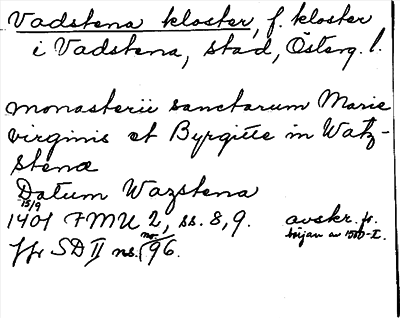 Vadstena kloster, f. kloster
i Vadstena, stad, Österg. l.
monasterii sanctarum Marie
virginis et Byrgitte in Watz-
stena
Datum Wazstena
15/9
1401 FMU 2, ss. 8, 9. avskr. fr.
början av 1500-t.
fr SD II ns. no. 96.